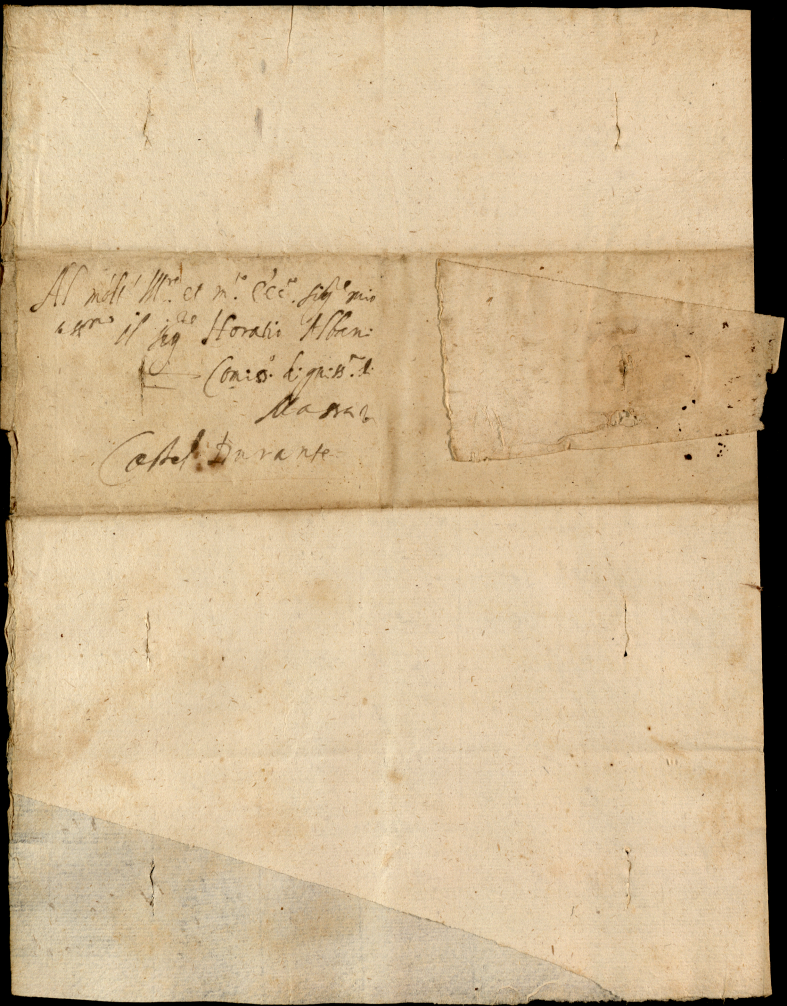 Al molt' Ill.re et m.to Ecc.te sig.r mio
il sig.re Horatio Albani
Comiss.o digniss.o di
Massa
Castel Durante